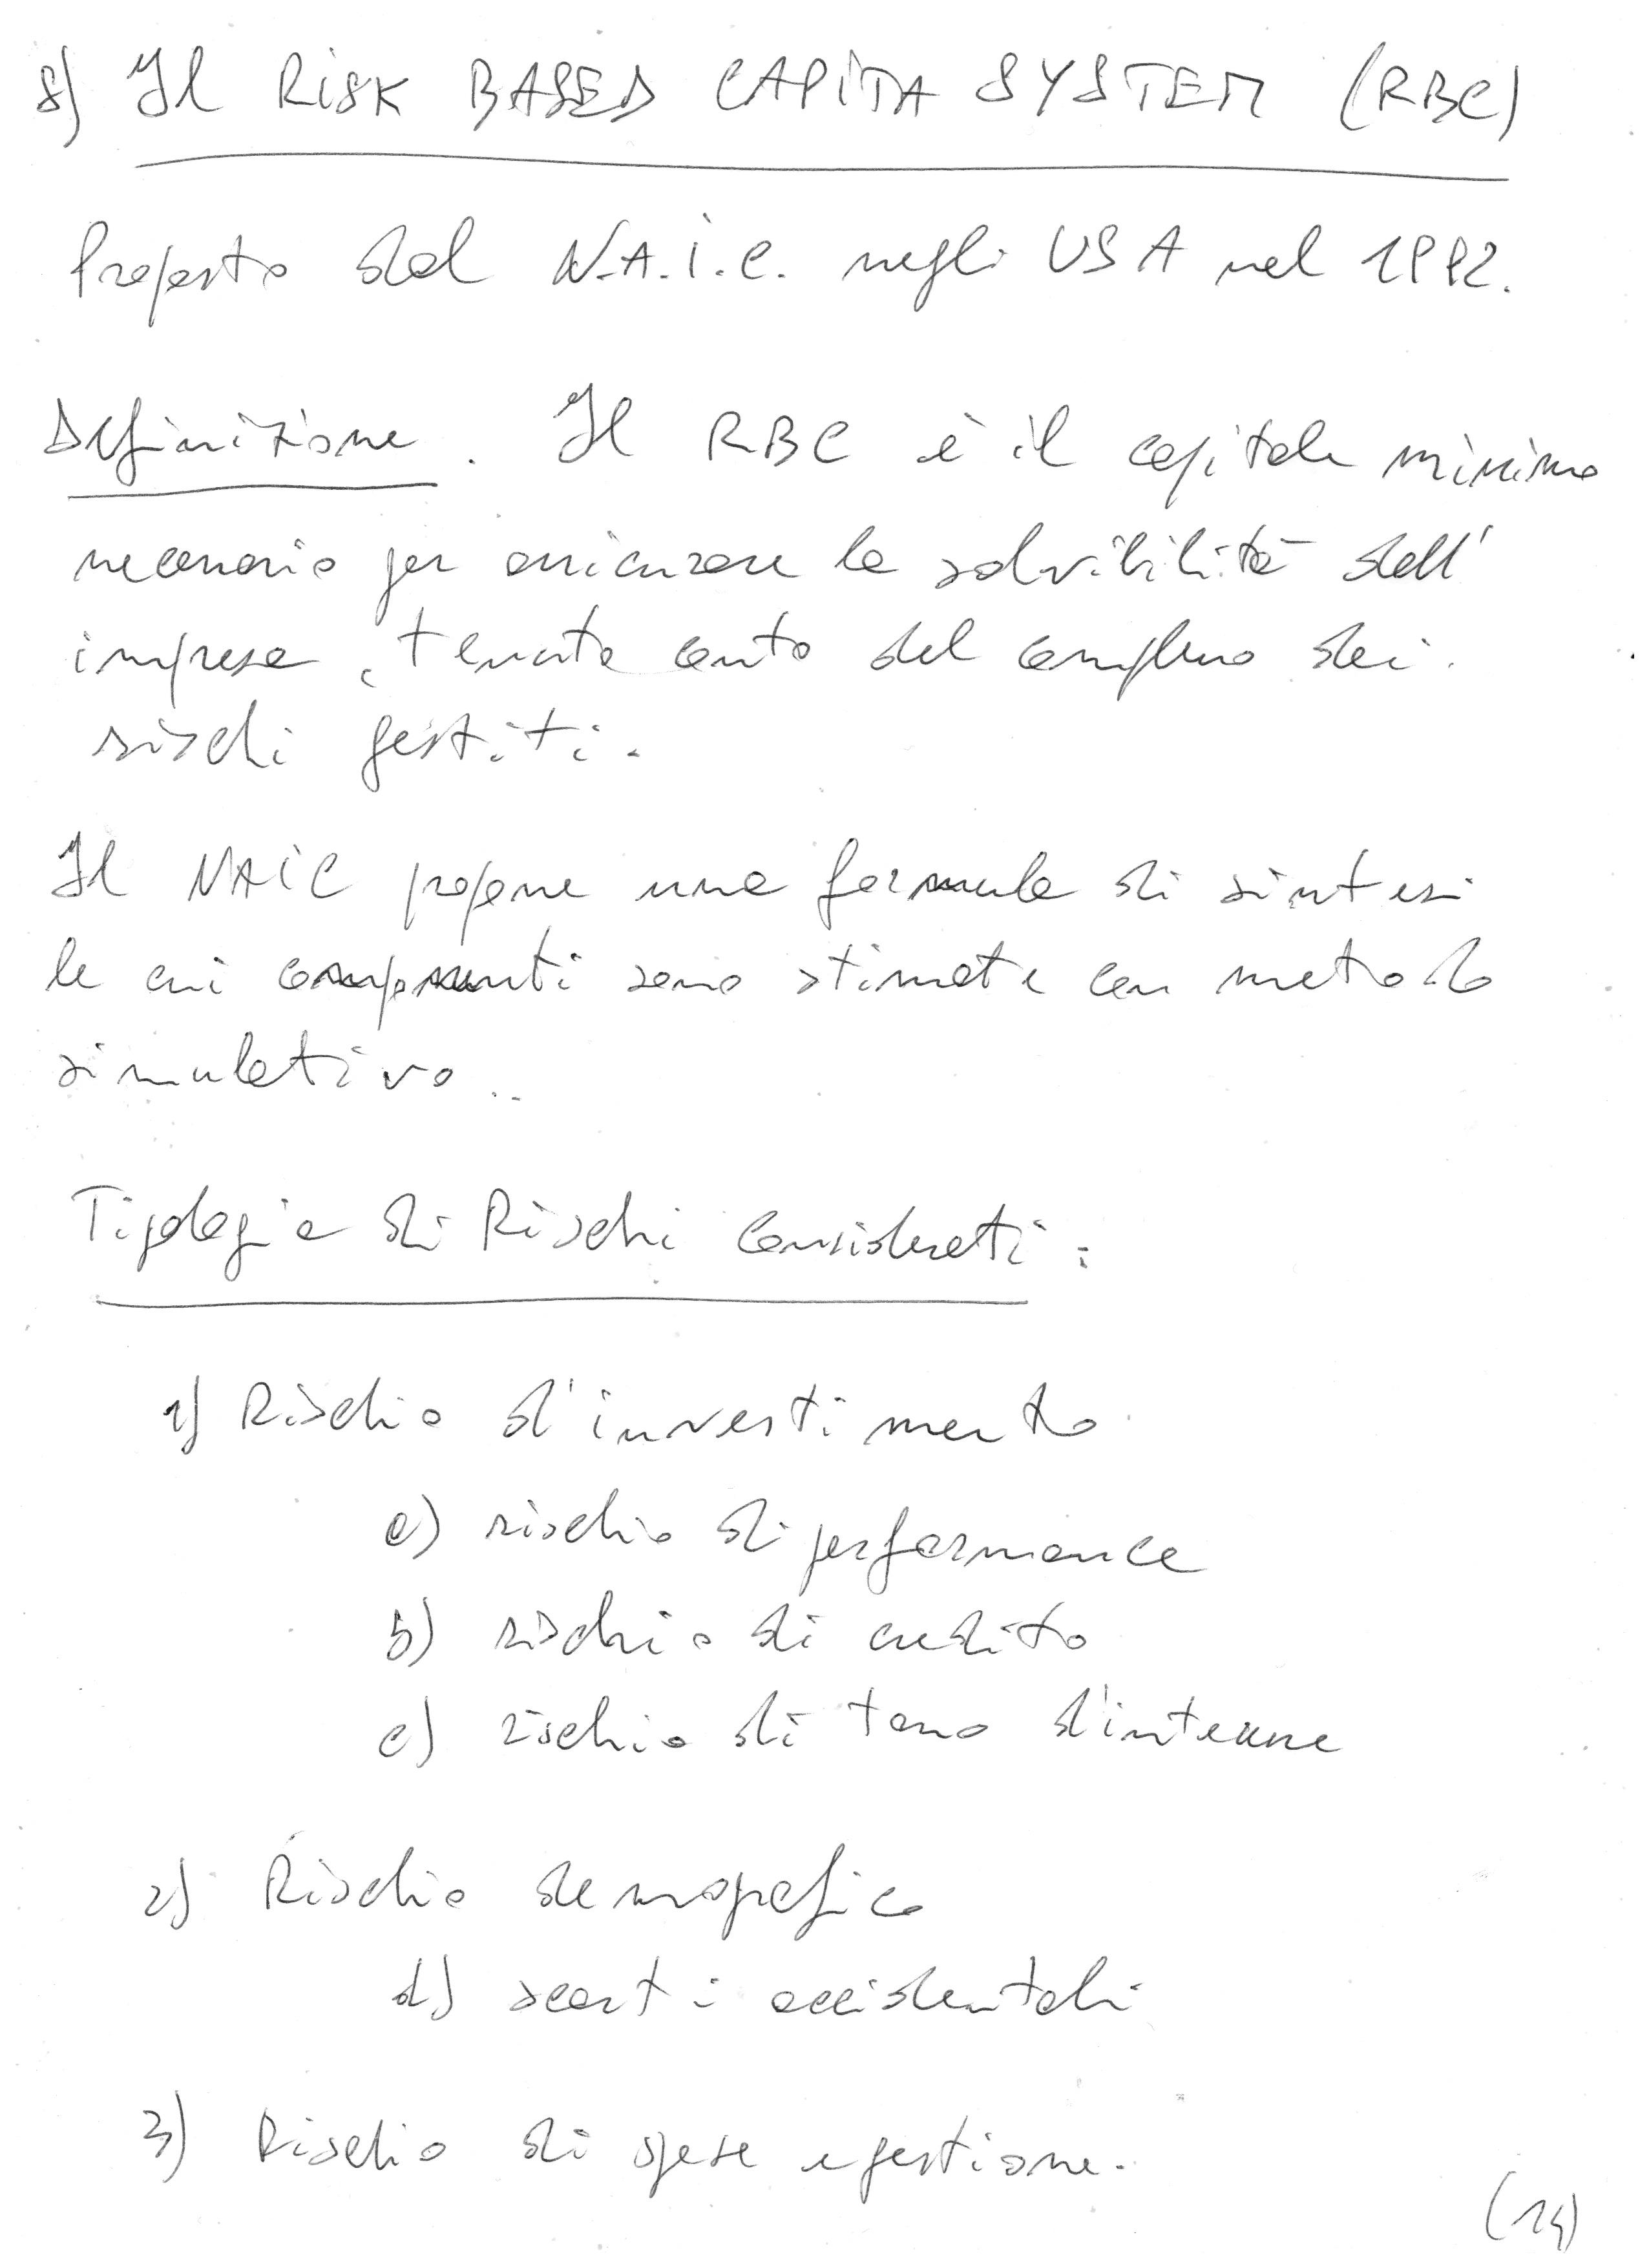 8) Il RISK BASED CAPITA SYSTEM (RBC)
Proposto dal N.A.I.C. negli USA nel 1992.
Definizione. Il RBC è il capitale minimo
necessario per assicurare la solvibilità dell'
impresa, tenuto conto del complesso dei
rischi gestiti.
Il NAIC propone una formula di sintesi
le cui componenti sono stimate con metodo
simulativo..
Tipologie di Rischi Considerati:
1) Rischio d'investimento
a) rischio di performance
b) rischio di credito
c) rischio di tasso d'interesse
2) Rischio demografico
d) scarti accidentali
3) Rischio di spese e gestione.
(14)